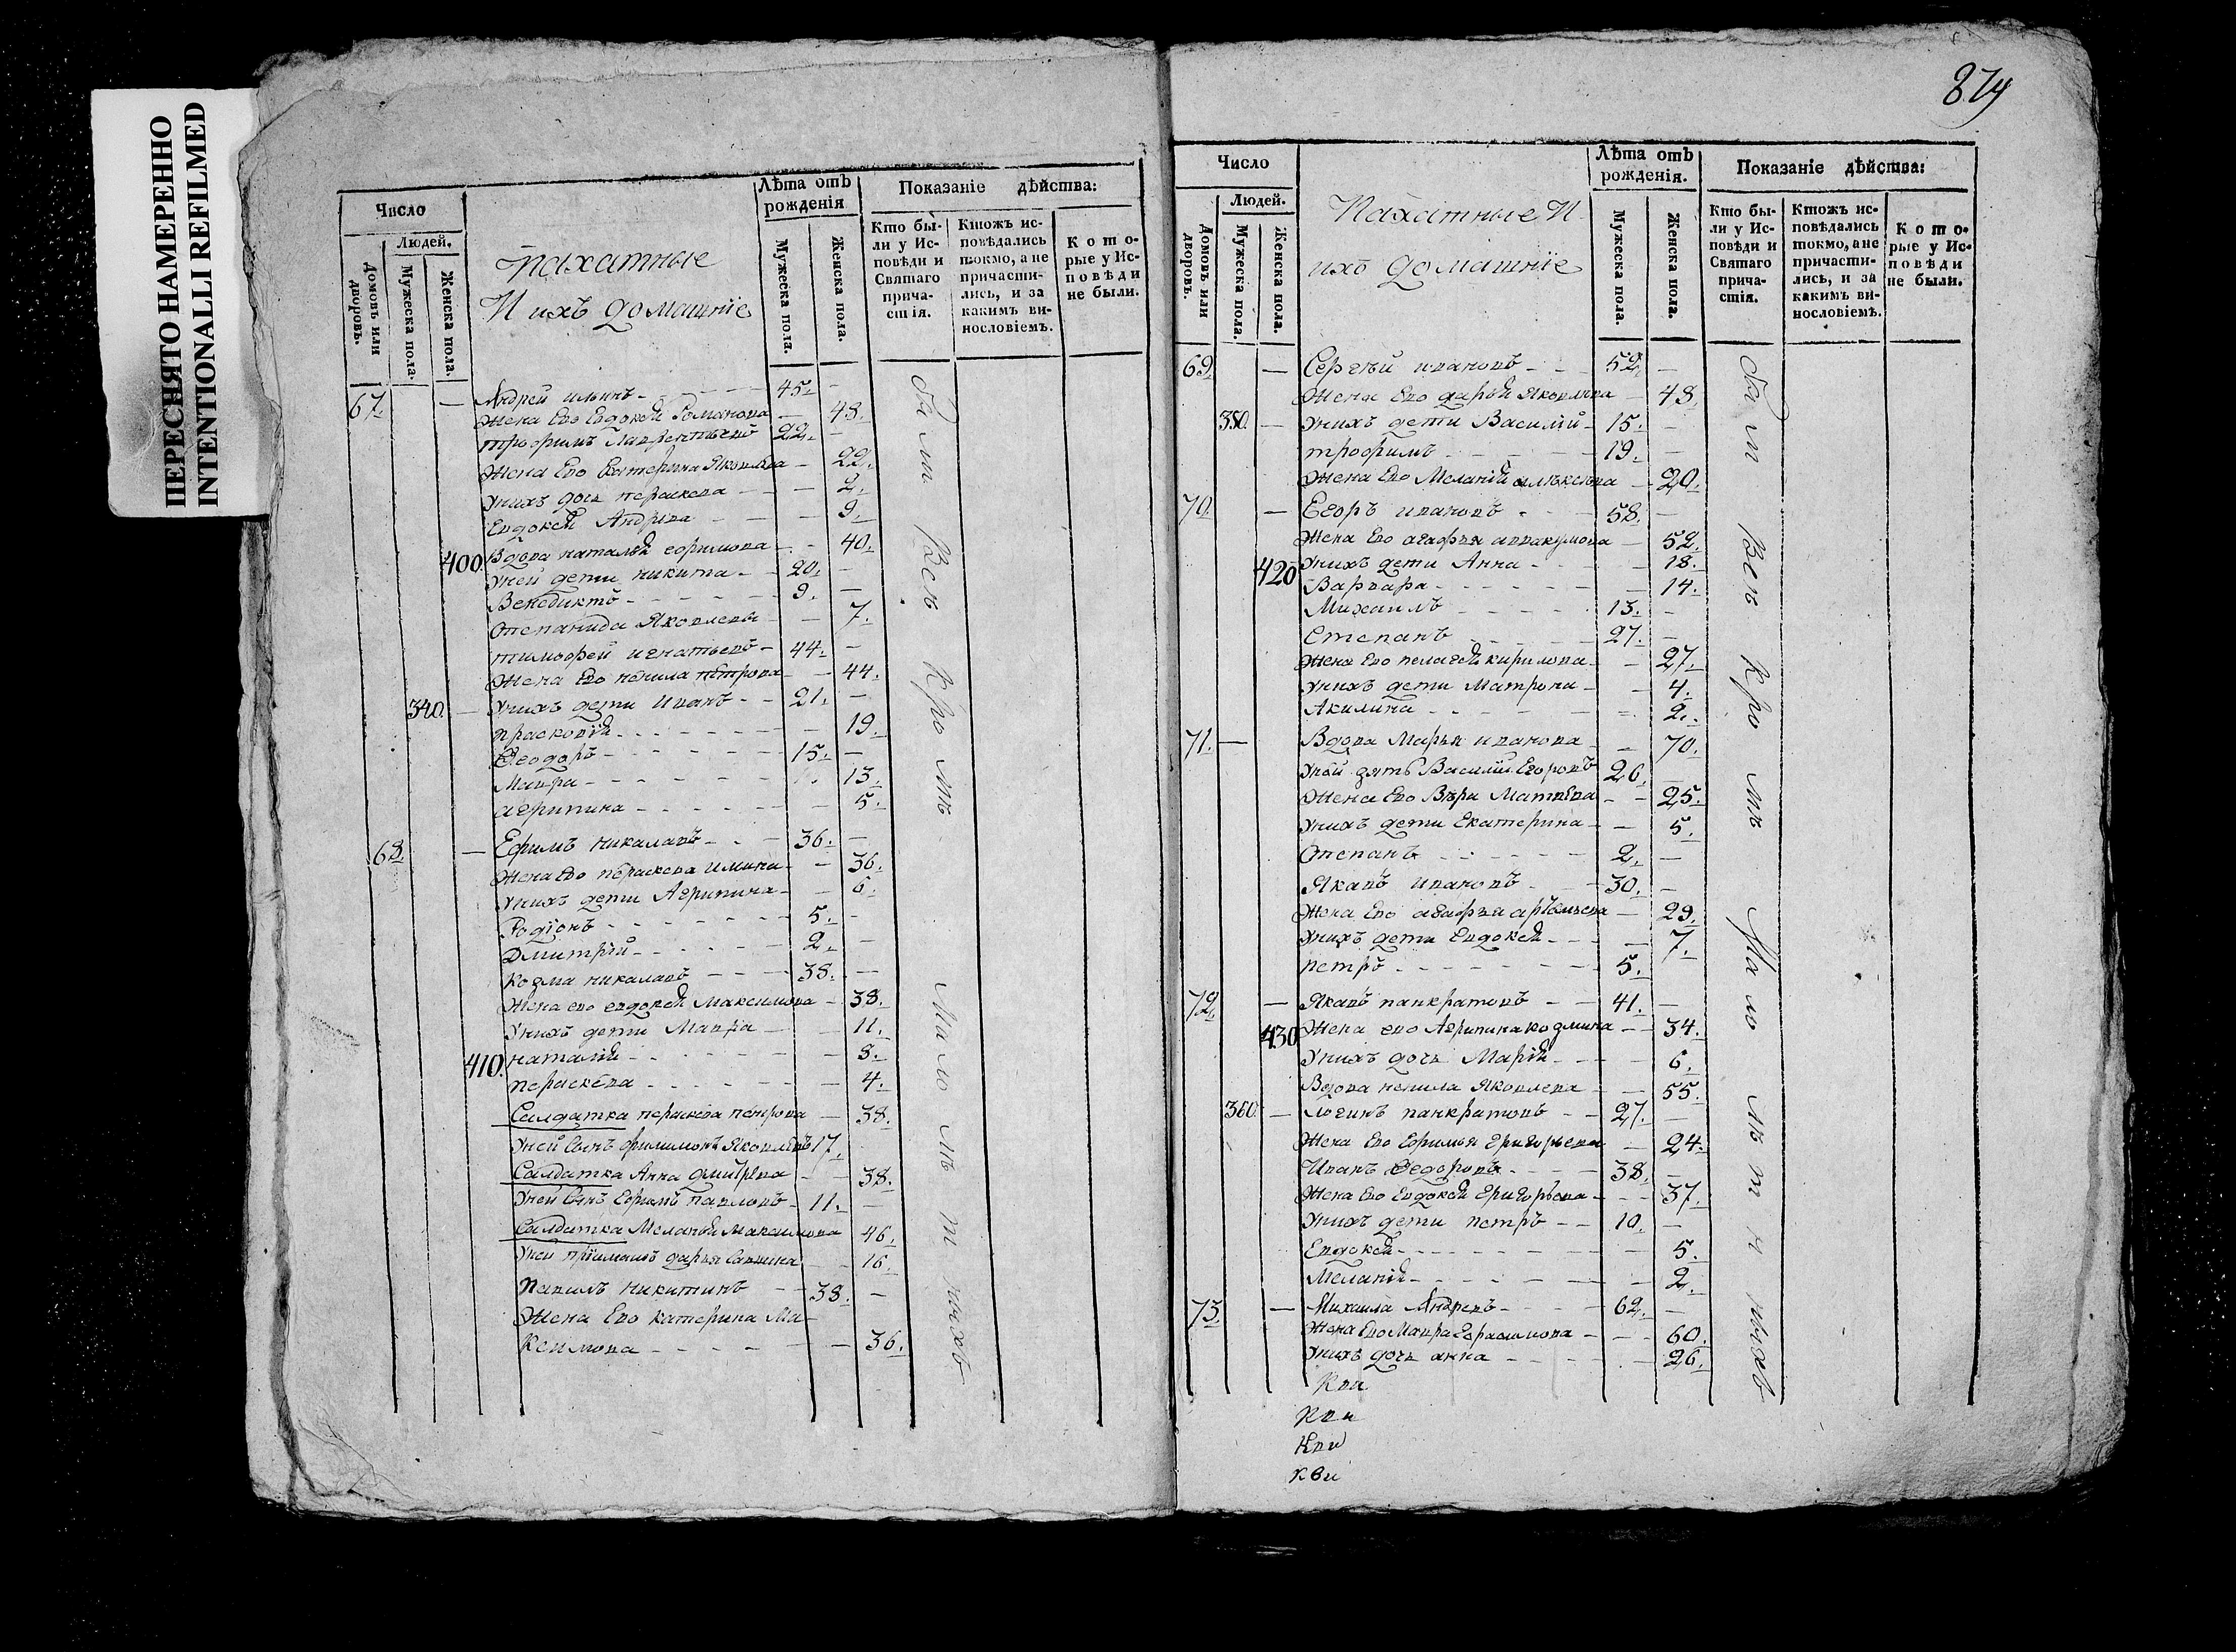 ПЕРЕСНЯТО НАМЕРЕННО
INTENTIONALLI REFILMED
Число
Людей.
Домовъ или дворовъ.
Мужеска пола.
Женска пола.
Пахатные
И ихъ домашнiе
Лѣта отъ рожденiя
Мужеска пола.
Женска пола.
Показанiе дѣйства:
Кто бы-
ли у Ис-
повѣди и
Святаго
прича-
стiя.
Ктожъ ис-
повѣдались
токмо, а не
причасти-
лись, и за
какимъ ви-
нословiемъ.
Кото-
рые у Ис-
повѣди
не были.
67. — Андрей ильинъ - - - 45. —
Жена Ево Евдокея Романова — 48.
трофимъ Лаврентьевъ 22. —
Жена Ево Екатерина Яковлева — 22.
Унихъ дочь пераскева — — 2.
Евдокея Андрѣва — — 9.
400. Вдова наталья ефимова — - 40.
Уней дети никита - - 20. —
Венедиктъ - - - - 9. —
Степанида Яковлева — — 7.
тимофей игнатьевъ — 44. —
Жена Ево ненила петрова — 44.
340. — Унихъ дети иванъ - - 21. —
прасковiя - - - - — 19.
Феодоръ - - - - 15. —
Мавра - - - - 13.
агрипина - - - - — 5.
68. — Ефимъ никалаевъ - - - 36. —
Жена ево пераскева илина — — 36.
Унихъ дети Агрипина — — 6.
Родiонъ - - - - 5. —
Дмитрiй - - - - 2. —
козма никалаевъ - - - 38. —
Жена ево евдокея Максимова — 38.
Унихъ дети Мавра — — 11.
410. наталiя - - - - — 8.
пераскева - - - - — 4.
Салдатка пераскева петрова — 38.
Уней сынъ филимонъ Яковлевъ 17.
Салдатка Анна дмитрева — — 38.
Уней сынъ Ефимъ павловъ — 11. —
Салдатка Меланья Максимова 46.
Уней прiимышъ дарья Савина — 16.
Павилъ никитинъ - - 38. —
Жена Ево катерина Ма-
ксимова - - - - — 36.
бы ли Всѣ Кро мѣ Ма ло лѣ т ныхъ
874
Число
Людей.
Домовъ или дворовъ.
Мужеска пола.
Женска пола.
Пахатные И
ихъ домашнiе
Лѣта отъ рожденiя.
Мужеска пола.
Женска пола.
Показанiе дѣйства:
Кто бы-
ли у Ис-
повѣди и
Святаго
прича-
стiя.
Ктожъ ис-
повѣдались
токмо, а не
причасти-
лись, и за
какимъ ви-
нословiемъ.
Кото-
рые у Ис-
повѣди
не были.
69. — Сергѣй ивановъ - - - 52. —
Жена Ево дарья Яковлева — 48.
350. — Унихъ дети Василiй — 15. —
трофимъ - - - - 19. —
Жена Ево Меланiя алѣксѣва — 20.
70. — Егоръ ивановъ - - - 58. —
Жена Ево агафья аввакумова — 52.
420. Унихъ дети Анна - - - — 18.
Варвара - - - - — 14.
Михаилъ - - - - 13. —
Степанъ - - - - 27. —
Жена Ево пелагея кирилова — — 27.
Унихъ дети Матрона — — 4.
Акилина - - - - — 2.
71. — Вдова Марья иванова — — 70.
Уней зять Василiй Егоровъ 26. —
Жена Ево Вѣра Матвѣва — — 25.
Унихъ дети Екатерина — — 5.
Степанъ - - - - 2. —
Якавъ ивановъ - - - 30. —
Жена Ево агафья артемьева — 29.
Унихъ дети Евдокея - - — 7.
петръ - - - - 5.
72. — Якавъ панкратовъ - - 41. —
430. Жена ево Агрипина козмина — — 34.
Унихъ дочь Марiя - - — 6.
Вдова ненила Яковлева — — 55.
360. — логинъ панкратовъ - - 27. —
Жена Ево Ефимья григорьева — 24.
Иванъ Федоровъ - - - 38. —
Жена Ево Евдокея Григорьева — — 37.
Унихъ дети петръ - - 10. —
Евдокея - - - - — 5.
Меланiя - - - - — 2.
73. — Михаила Андревъ - - - 62. —
Жена Ево Мавра Герасимова — — 60.
Унихъ дочь анна - - - — 26.
бы ли Всѣ Кро мѣ Ма ло лѣ т ныхъ